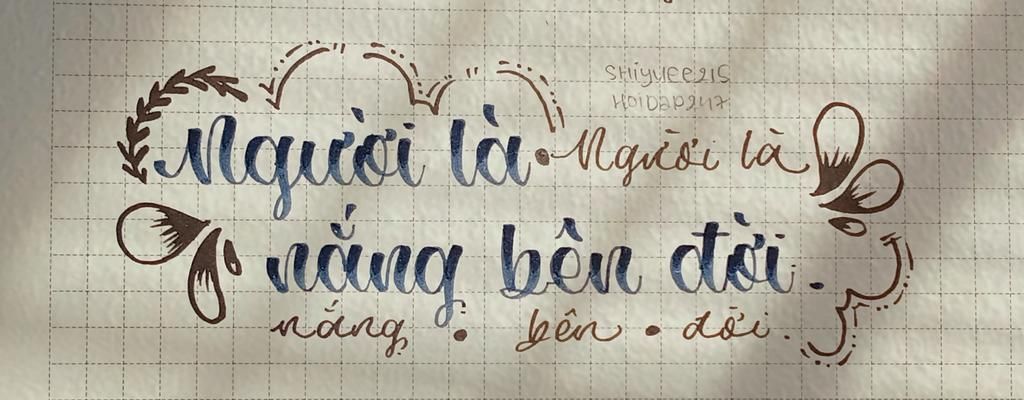 SHiyuee215
HOiDAP247
Người là • Người là
nắng bên đời.
nắng • bên • đời.